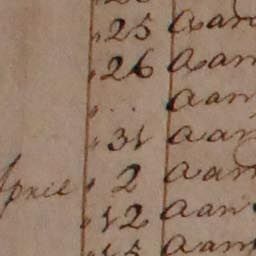 25 Aan
26 Aan
" Aan
31 Aan
April 2 Aan
12 Aan
15 Aan